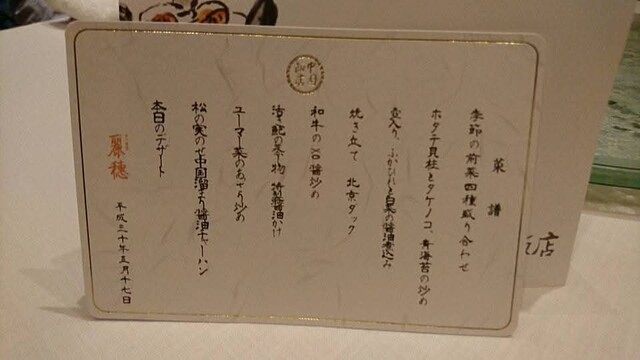 菜譜
季節の前菜四種盛り合わせ
ホタテ貝柱とタケノコ、青海苔の炒め
壺入り ふかひれと白菜の醤油煮込み
焼き立て 北京ダック
和牛のXO醤炒め
ユーマー菜のあっさり炒め
松の実のせ中国溜まり醤油チャーハン
本日のデザート
平成三十年五月十七日
店